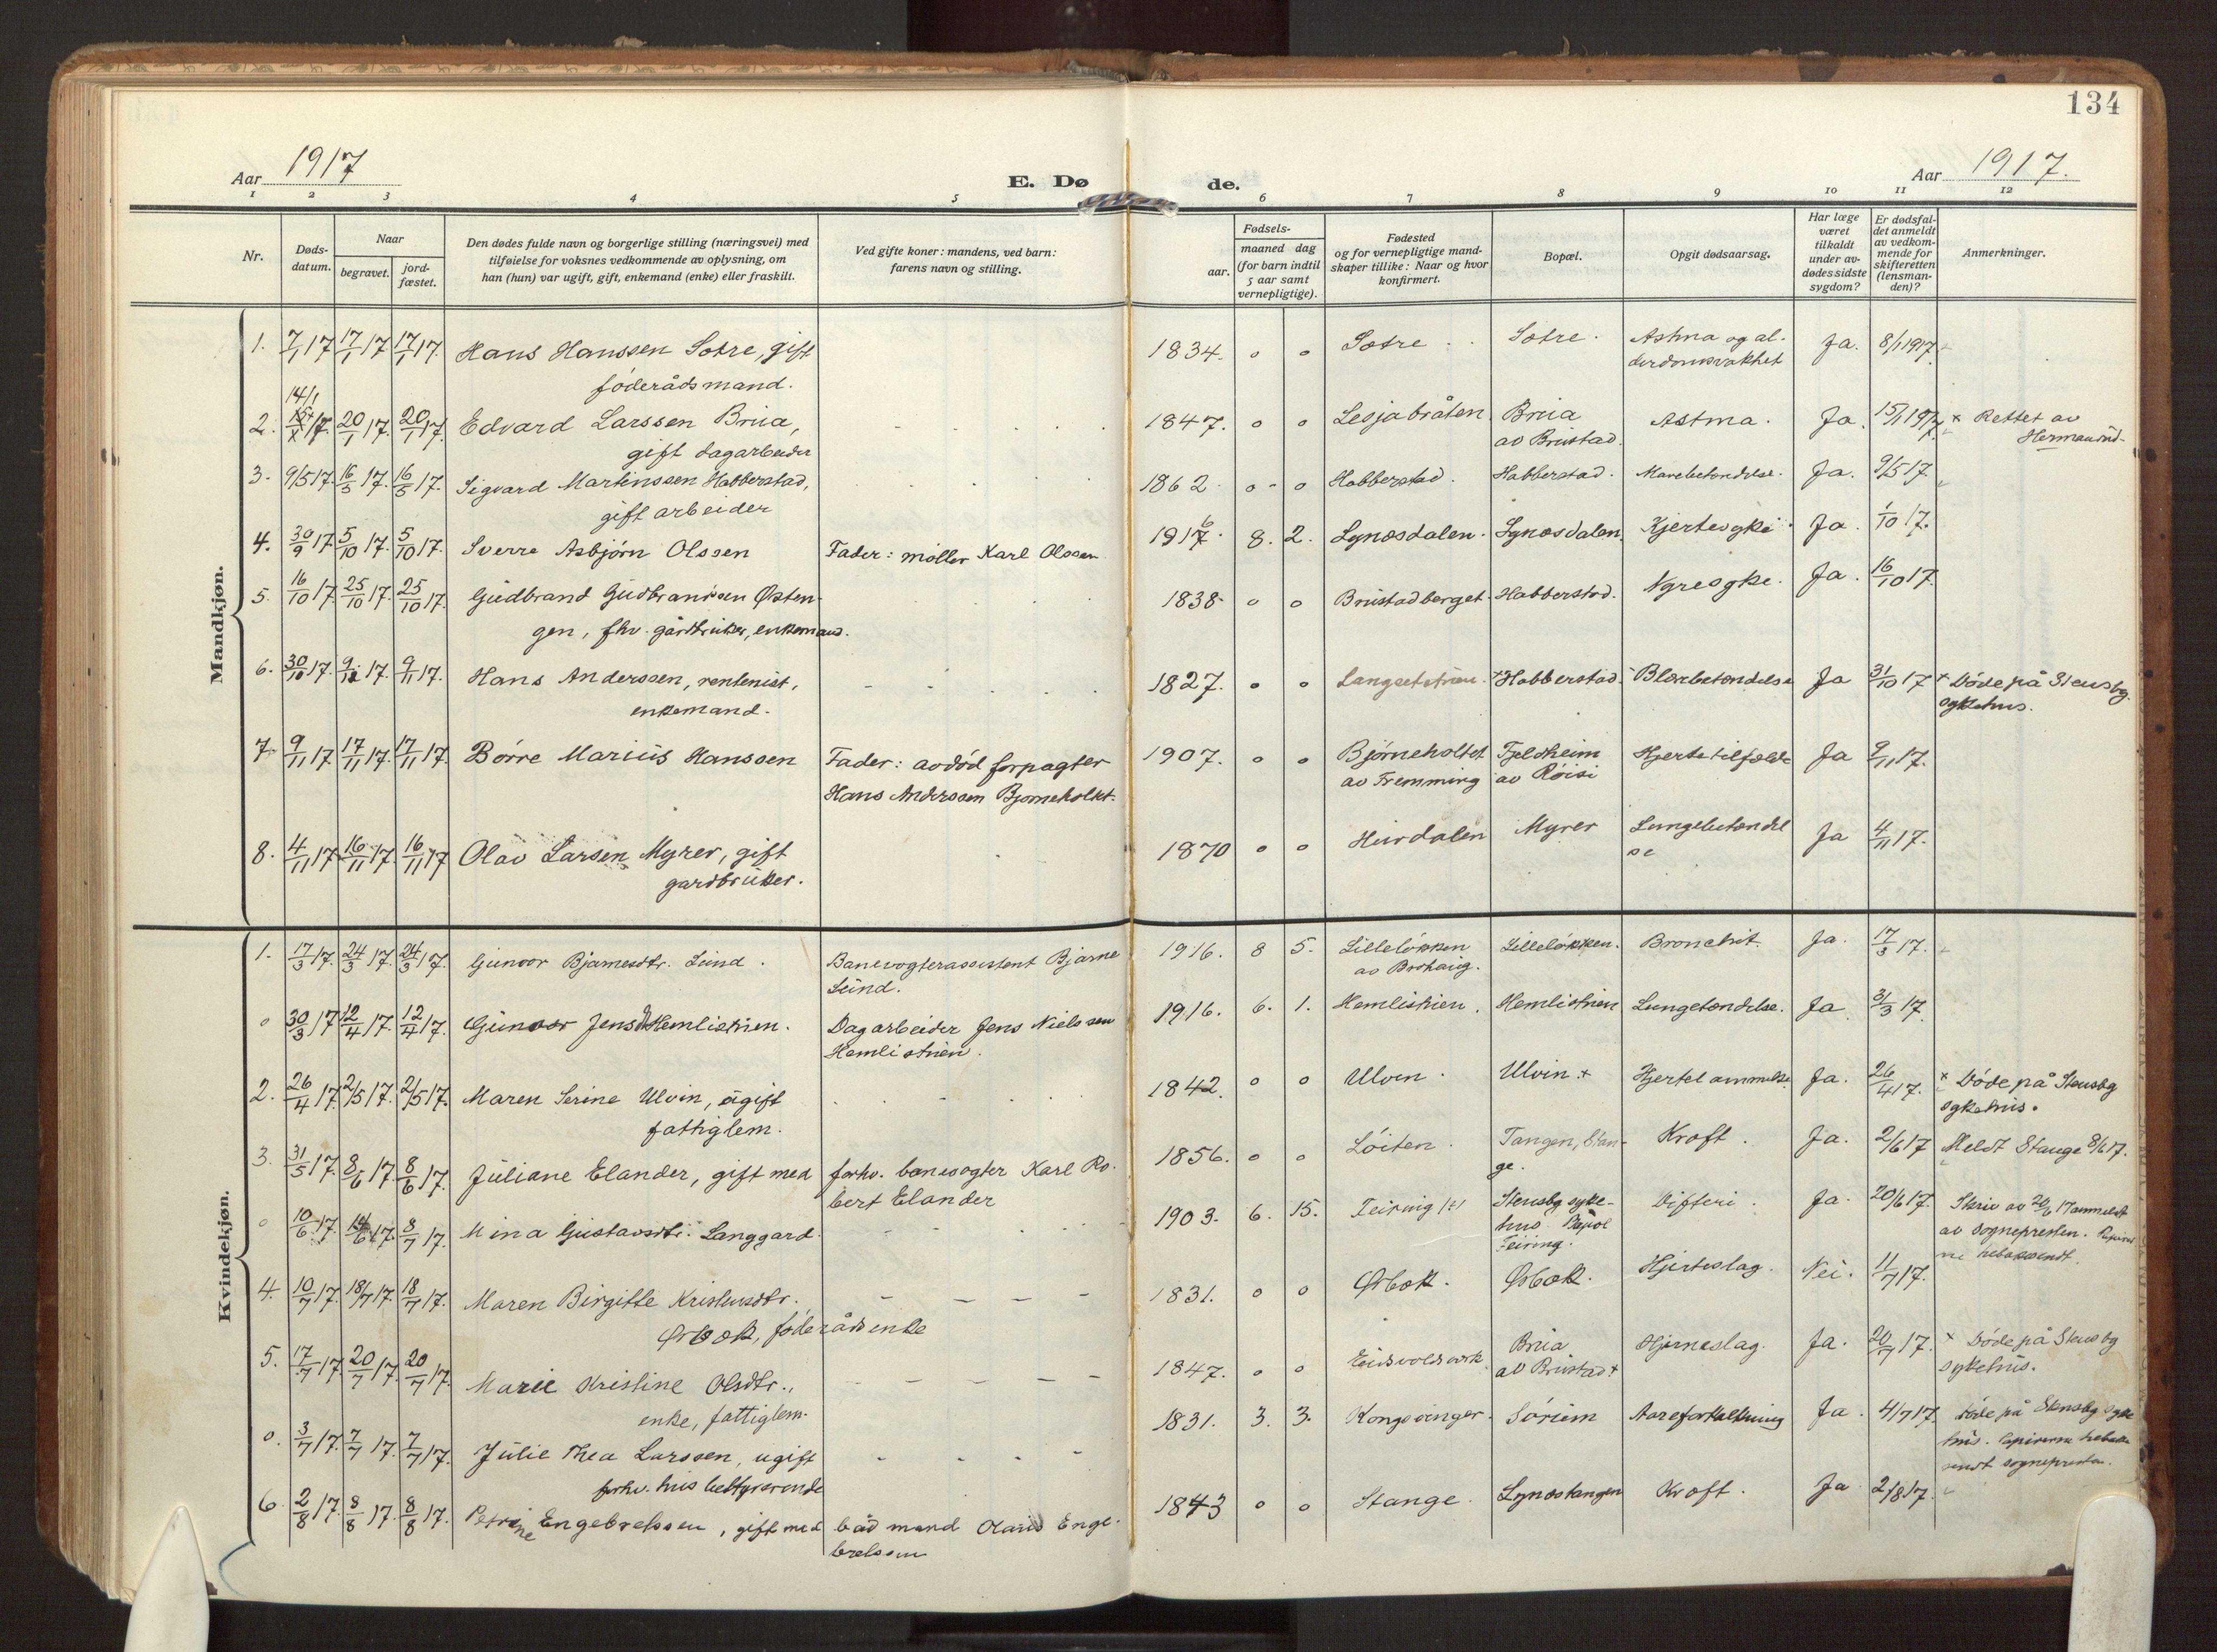 134
Aar 1917
E. Dø
de.
Aar 1917.
1 2 3 4 5 6 7 8 9 10 11 12
Nr.
Døds-
datum.
Naar
begravet.
jord-
fæstet.
Den dødes fulde navn og borgerlige stilling (næringsvei) med
tilføielse for voksnes vedkommende av oplysning, om
han (hun) var ugift, gift, enkemand (enke) eller fraskilt.
Ved gifte koner: mandens, ved barn:
farens navn og stilling.
Fødsels-
aar.
maaned dag
(for barn indtil
5 aar samt
vernepligtige).
Fødested
og for vernepligtige mand-
skaper tillike: Naar og hvor
konfirmert.
Bopæl.
Opgit dødsaarsag.
Har læge
været
tilkaldt
under av-
dødes sidste
sygdom?
Er dødsfal-
det anmeldt
av vedkom-
mende for
skifteretten
(lensman-
den)?
Anmerkninger.
Mandkjøn.
1. 7/1 17 17/1 17 17/1 17. Hans Hanssen Sotre, gift 1834. o o Sotre . . Sotre . Astma og al- Ja. 8/1 1917
føderådsmand. derdomsvakhet
14/1
2. 15/1 17. 20/1 17. 20/1 17. Edvard Larssen Brua, 1847. o o Lesjabråten. Brua Astma . Ja. 15/1 1917 × Rettet av
gift dagarbeider av Brustad. Hermanrud.
3. 9/5 17. 16/5 17. 16/5 17. Sigvard Martinssen Habberstad, 1862. o - o Habberstad. Habberstad. Mavebetændelse. Ja. 9/5 17
gift arbeider
4. 30/9 17 5/10 17. 5/10 17. Sverre Asbjørn Olssen Fader: møller Karl Olssen 1916. 8. 2. Lynæsdalen. Lynæsdalen. Hjertesyke. Ja. 1/10 17.
5. 16/10 17. 25/10 17. 25/10 17. Gudbrand Gudbrandsen Østen- 1838 o o Brustadberget. Habberstad. Nyresyke. Ja. 16/10 17.
gen, fhv. gårdbruker, enkemand.
6. 30/10 17. 9/11 17. 9/11 17. Hans Anderssen, rentenist, 1827. o o Langsetstrien. × Habberstad Blærebetændelse Ja 31/10 17 × Døde på Stensby
enkemand. sykehus.
7. 9/11 17 17/11 17. 17/11 17 Børre Marius Hanssen Fader: avdød forpagter 1907. o o Bjørneholtet Fjeldheim Hjertetilfælde Ja 9/11 17.
Hans Anderssen Bjørneholtet. av Fremming av Røisi
8. 4/11 17 16/11 17. 16/11 17 Olav Larsen Myrer, gift 1870 o o Hurdalen Myrer Lungebetændel Ja 4/11 17.
gardbruker. se
Kvindekjøn.
1. 17/3 17. 24/3 17. 24/3 17. Gunvor Bjarnesdtr. Lund . Banevogterassistent Bjarne 1916. 8 5. Lilleløkken Lilleløkken. Bronchit. Ja. 17/3 17.
Lund. av Brohaug.
o 30/3 17 12/4 17. 12/4 17. Gunvor Jensd. Hemlistrien. Dagarbeider Jens Nielssen 1916. 6. 1. Hemlistrien. Hemlistrien Lungetændelse. Ja. 31/3 17.
Hemlistrien.
2. 26/4 17. 2/5 17. 2/5 17. Maren Serine Ulvin, ugift 1842. o o Ulven . Ulvin × Hjertelammelse. Ja. 26/4 17. × Døde på Stensby
fattiglem. sykehus.
3. 31/5 17. 8/6 17. 8/6 17. Juliane Elander, gift med forhv. banevogter Karl Ro- 1856. o o Løiten . Tangen, Stan- Kræft . Ja. 2/6 17 Meldt Stange 8/6 17.
bert Elander ge.
o 10/6 17. 14/6 17. 8/7 17. Mina Gustavsdtr. Langgard. 1903. 6. 15. Feiring Stensby syke- Difteri . Ja. 20/6 17. Skriv av 20/6 17 anmeldt
hus. Bopæl av sognepresten. Papirer
Feiring. ne tilbakesendt.
4. 10/7 17. 18/7 17. 18/7 17. Maren Birgitte Kristensdtr. 1831. o o Ørbæk. Ørbæk. Hjerteslag. Nei. 11/7 17.
Ørbæk, føderådsenke
5. 17/7 17. 20/7 17. 20/7 17. Marie Kristine Olsdtr., 1847. o o Eidsvoldsverk. Brua Hjerneslag. Ja. 20/7 17. × Døde på Stensby
enke, fattiglem. av Brustad × sykehus.
o. 3/7 17. 7/7 17. 7/7 17. Julie Thea Larssen, ugift 1831. 3. 3. Kongsvinger. Sørum Aareforkalkning Ja. 4/7 17. Døde på Stensby syke
forhv. husbestyrerinde hus. Papirerne tilbake
sendt sognepresten.
6. 2/8 17. 8/8 17. 8/8 17. Petrine Engebretssen, gift med bådmand Olaus Enge- 1843 o o Stange . Lynæstangen Kræft . Ja 2/8 17.
bretssen